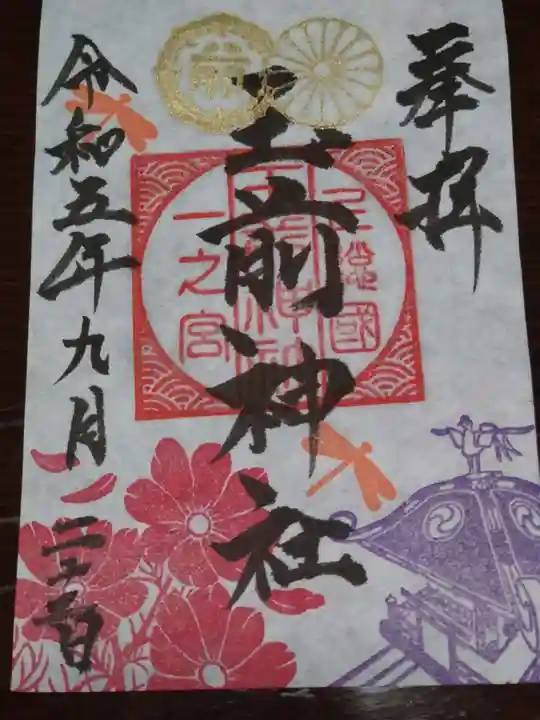 奉拝
上総國
玉前神社
一之宮
玉前神社
令和五年九月二十三日